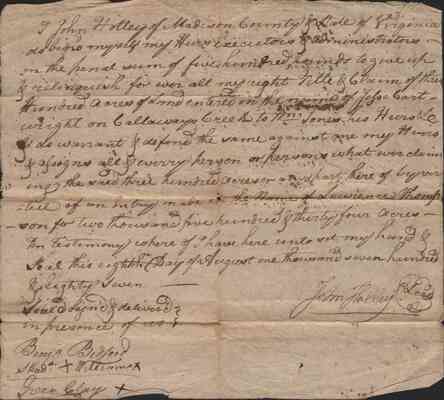 I John Holley of Madison County & State of Virginia
do bind myself my Heirs Executors & administrators
in the penal sum of five hundred pounds to give up
& relinquish for ever all my right Title & Claim of three
Hundred Acres of Land entered in the name of Cart-
wright on Callaways Creek to Jones, his Heirs &c
& do warrant & defend the same against me my Heirs
& assigns all & every person or persons what ever claim
ing the said three hundred acres or any part there of by vir
tue of an entry made in the Name of Lawrence Thomp
son for two thousand five hundred & thirty four Acres
In testimony where of I have here unto set my hand &
Seal this eighth Day of August one thousand seven hundred
& eighty seven
John Holley
Seal'd Sign'd & deliver'd
in presence of us
Benja Bedford
Green Clay +